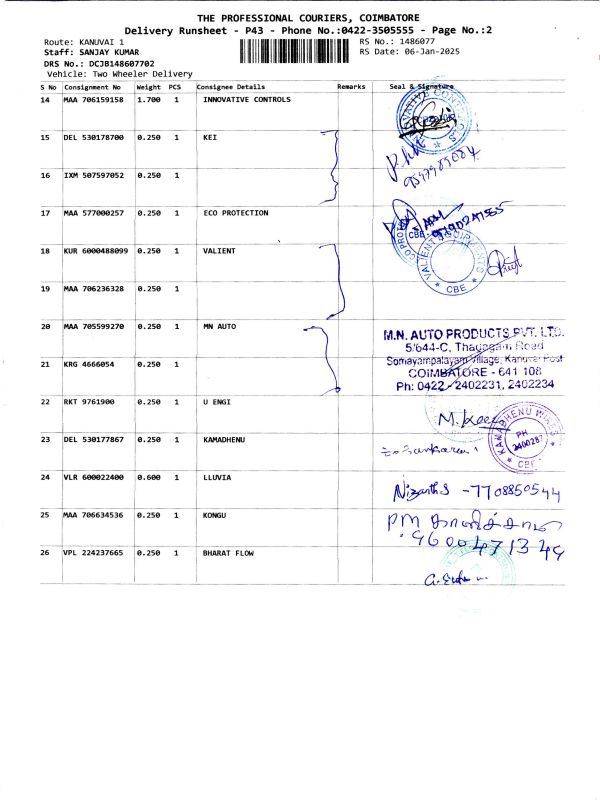 THE PROFESSIONAL COURIERS, COIMBATORE
Delivery Runsheet - P43 - Phone No.:0422-3505555 - Page No.:2
Route: KANUVAI 1 RS No.: 1486077
Staff: SANJAY KUMAR RS Date: 06-Jan-2025
DRS No.: DCJB148607702
Vehicle: Two Wheeler Delivery
S No Consignment No Weight PCS Consignee Details Remarks Seal & Signature
14 MAA 706159158 1.700 1 INNOVATIVE CONTROLS
15 DEL 530178700 0.250 1 KEI
16 IXM 507597052 0.250 1
17 MAA 577000257 0.250 1 ECO PROTECTION
CBE
18 KUR 6000488099 0.250 1 VALIENT
VALIENT
CBE
19 MAA 706236328 0.250 1
20 MAA 705599270 0.250 1 MN AUTO
M.N. AUTO PRODUCTS PVT. LTD.
5/644-C, Thadagam Road
Somayampalayam Village, Kanuvai Post
COIMBATORE - 641 108
Ph: 0422 - 2402231, 2402234
21 KRG 4666054 0.250 1
22 RKT 9761900 0.250 1 U ENGI
23 DEL 530177867 0.250 1 KAMADHENU
KAMADHENU WIRES
PH
2400287
CBE
24 VLR 600022400 0.600 1 LLUVIA
Nizanth S - 7708850544
25 MAA 706634536 0.250 1 KONGU
PM
9600471349
26 VPL 224237665 0.250 1 BHARAT FLOW